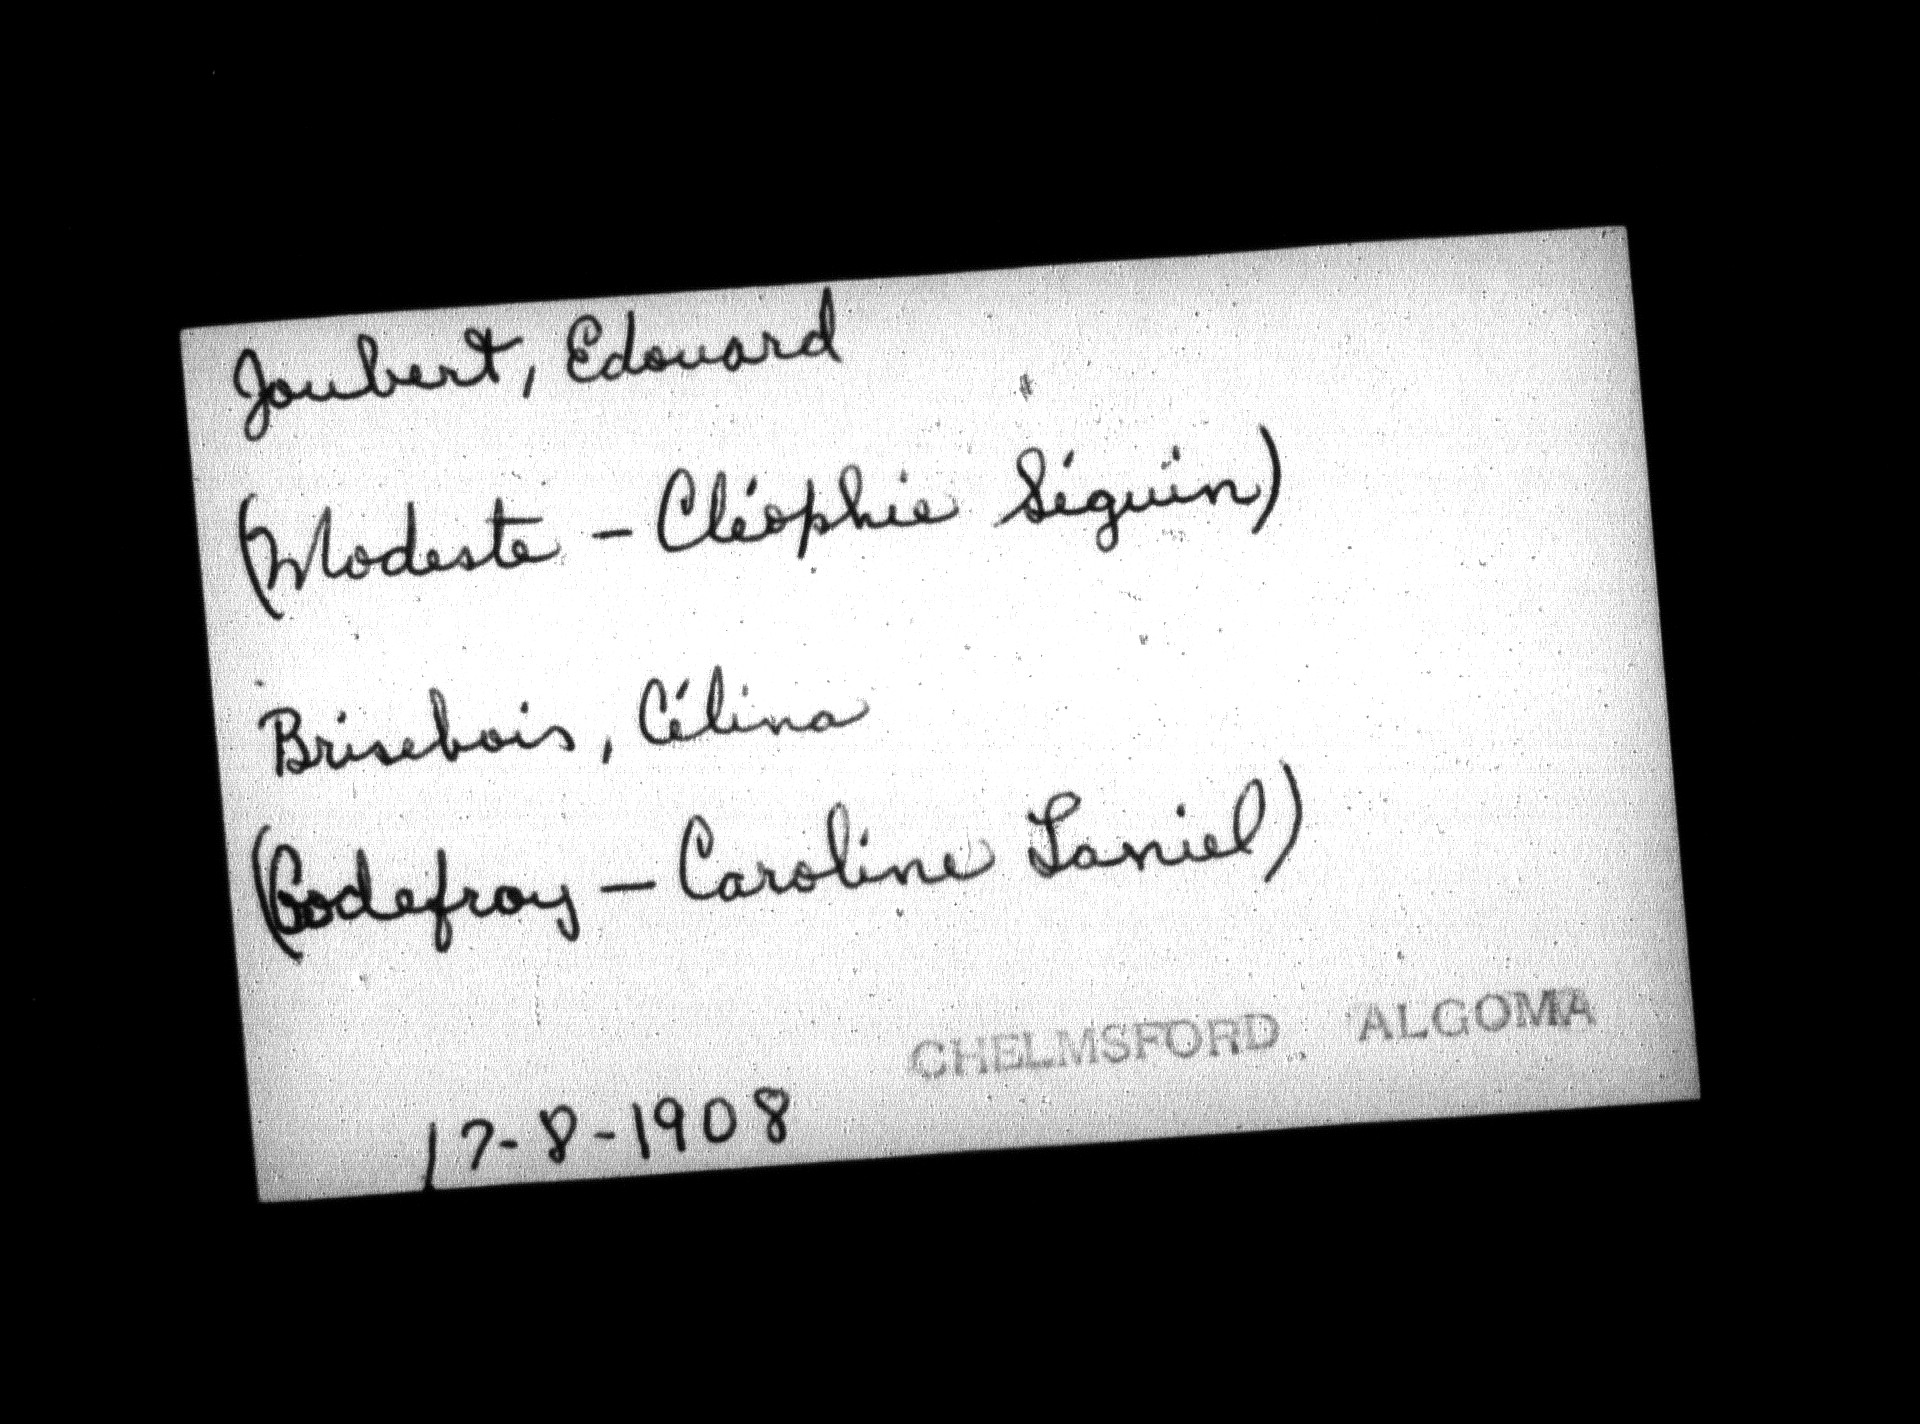 Joubert, Edouard
(Modeste - Cléophie Séguin)
Brisebois, Célina
(Godefroy - Caroline Laniel)
CHELMSFORD ALGOMA
17-8-1908